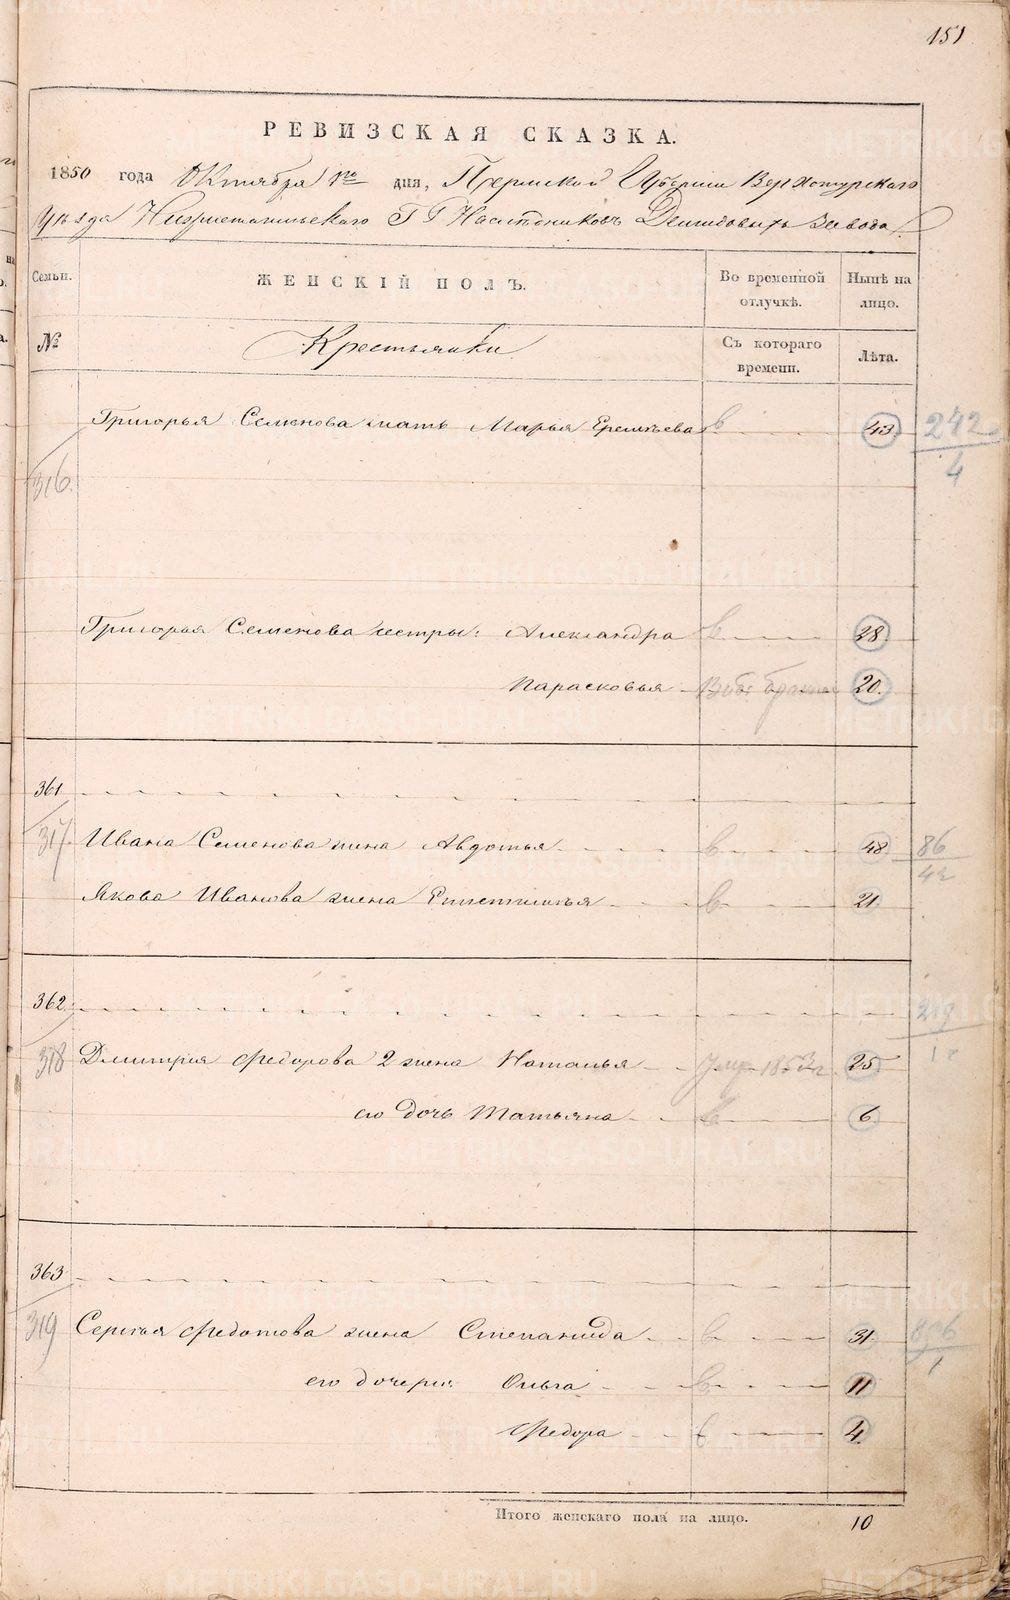 151
РЕВИЗСКАЯ СКАЗКА.
1850 года Октября 1го дня, Пермской Губернии Верхотурскаго
Уѣзда Нижнетагильскаго Г Г Наслѣдниковъ Демидовыхъ Завода
Семьи. ЖЕНСКІЙ ПОЛЪ. Во временной отлучкѣ. Нынѣ на лицо.
№ Крестьянки Съ котораго времени. Лѣта.
Григорья Семенова мать Марья Еремѣева в 43 242/4
316
Григорья Семенова сестры: Александра в 28
Парасковья 20
361
317 Ивана Семенова жена Авдотья в 48 86
Якова Иванова жена Епистимья в 21
362
318 Дмитрия Федорова 2 жена Наталья Умр 1853 г 25
его дочь Татьяна в 6
363
319 Сергѣя Федотова жена Степанида в 31
его дочери: Ольга в 11
Федора в 4
Итого женскаго пола на лицо. 10
METRIKI.GASO-URAL.RU